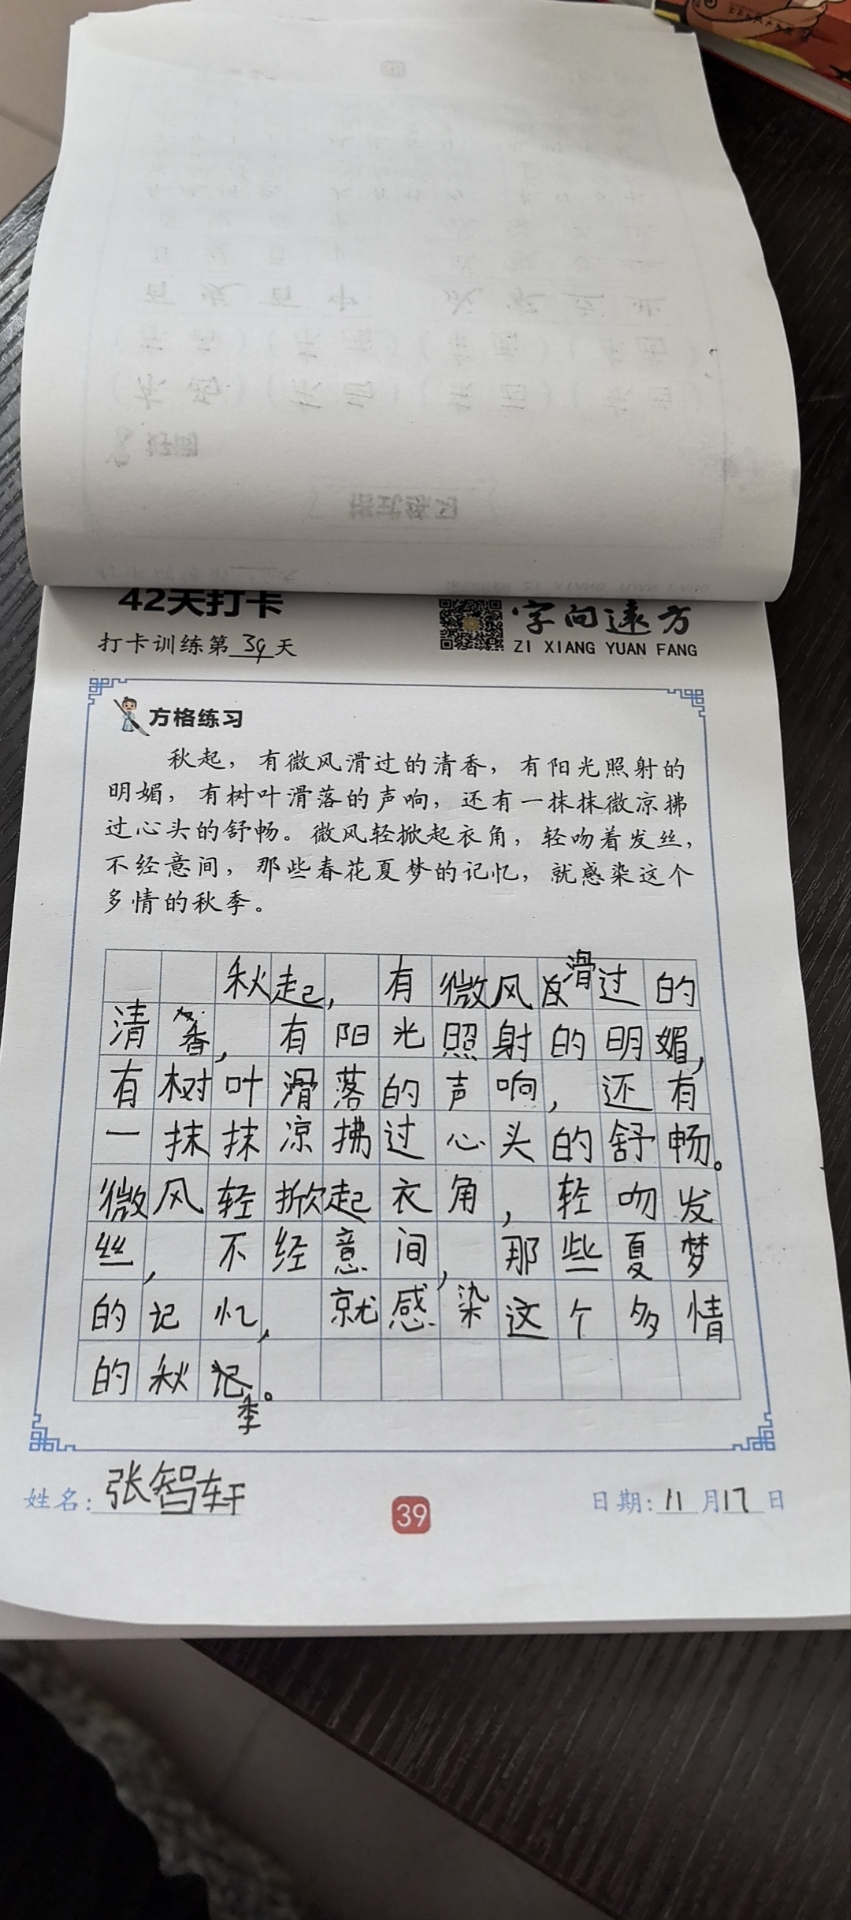 42天打卡
打卡训练第39天
字向远方
ZI XIANG YUAN FANG
方格练习
秋起，有微风滑过的清香，有阳光照射的
明媚，有树叶滑落的声响，还有一抹抹微凉拂
过心头的舒畅。微风轻掀起衣角，轻吻着发丝，
不经意间，那些春花夏梦的记忆，就感染这个
多情的秋季。
秋起，有微风滑过的
清香，有阳光照射的明媚，
有树叶滑落的声响，还有
一抹抹凉拂过心头的舒畅。
微风轻掀起衣角，轻吻发
丝，不经意间，那些夏梦
的记忆，就感染这个多情
的秋季。
姓名：张智轩
39
日期：11月17日